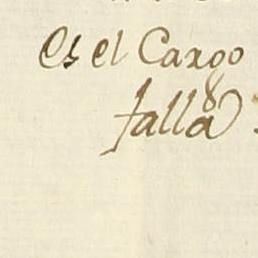 Es el Cargo
falla